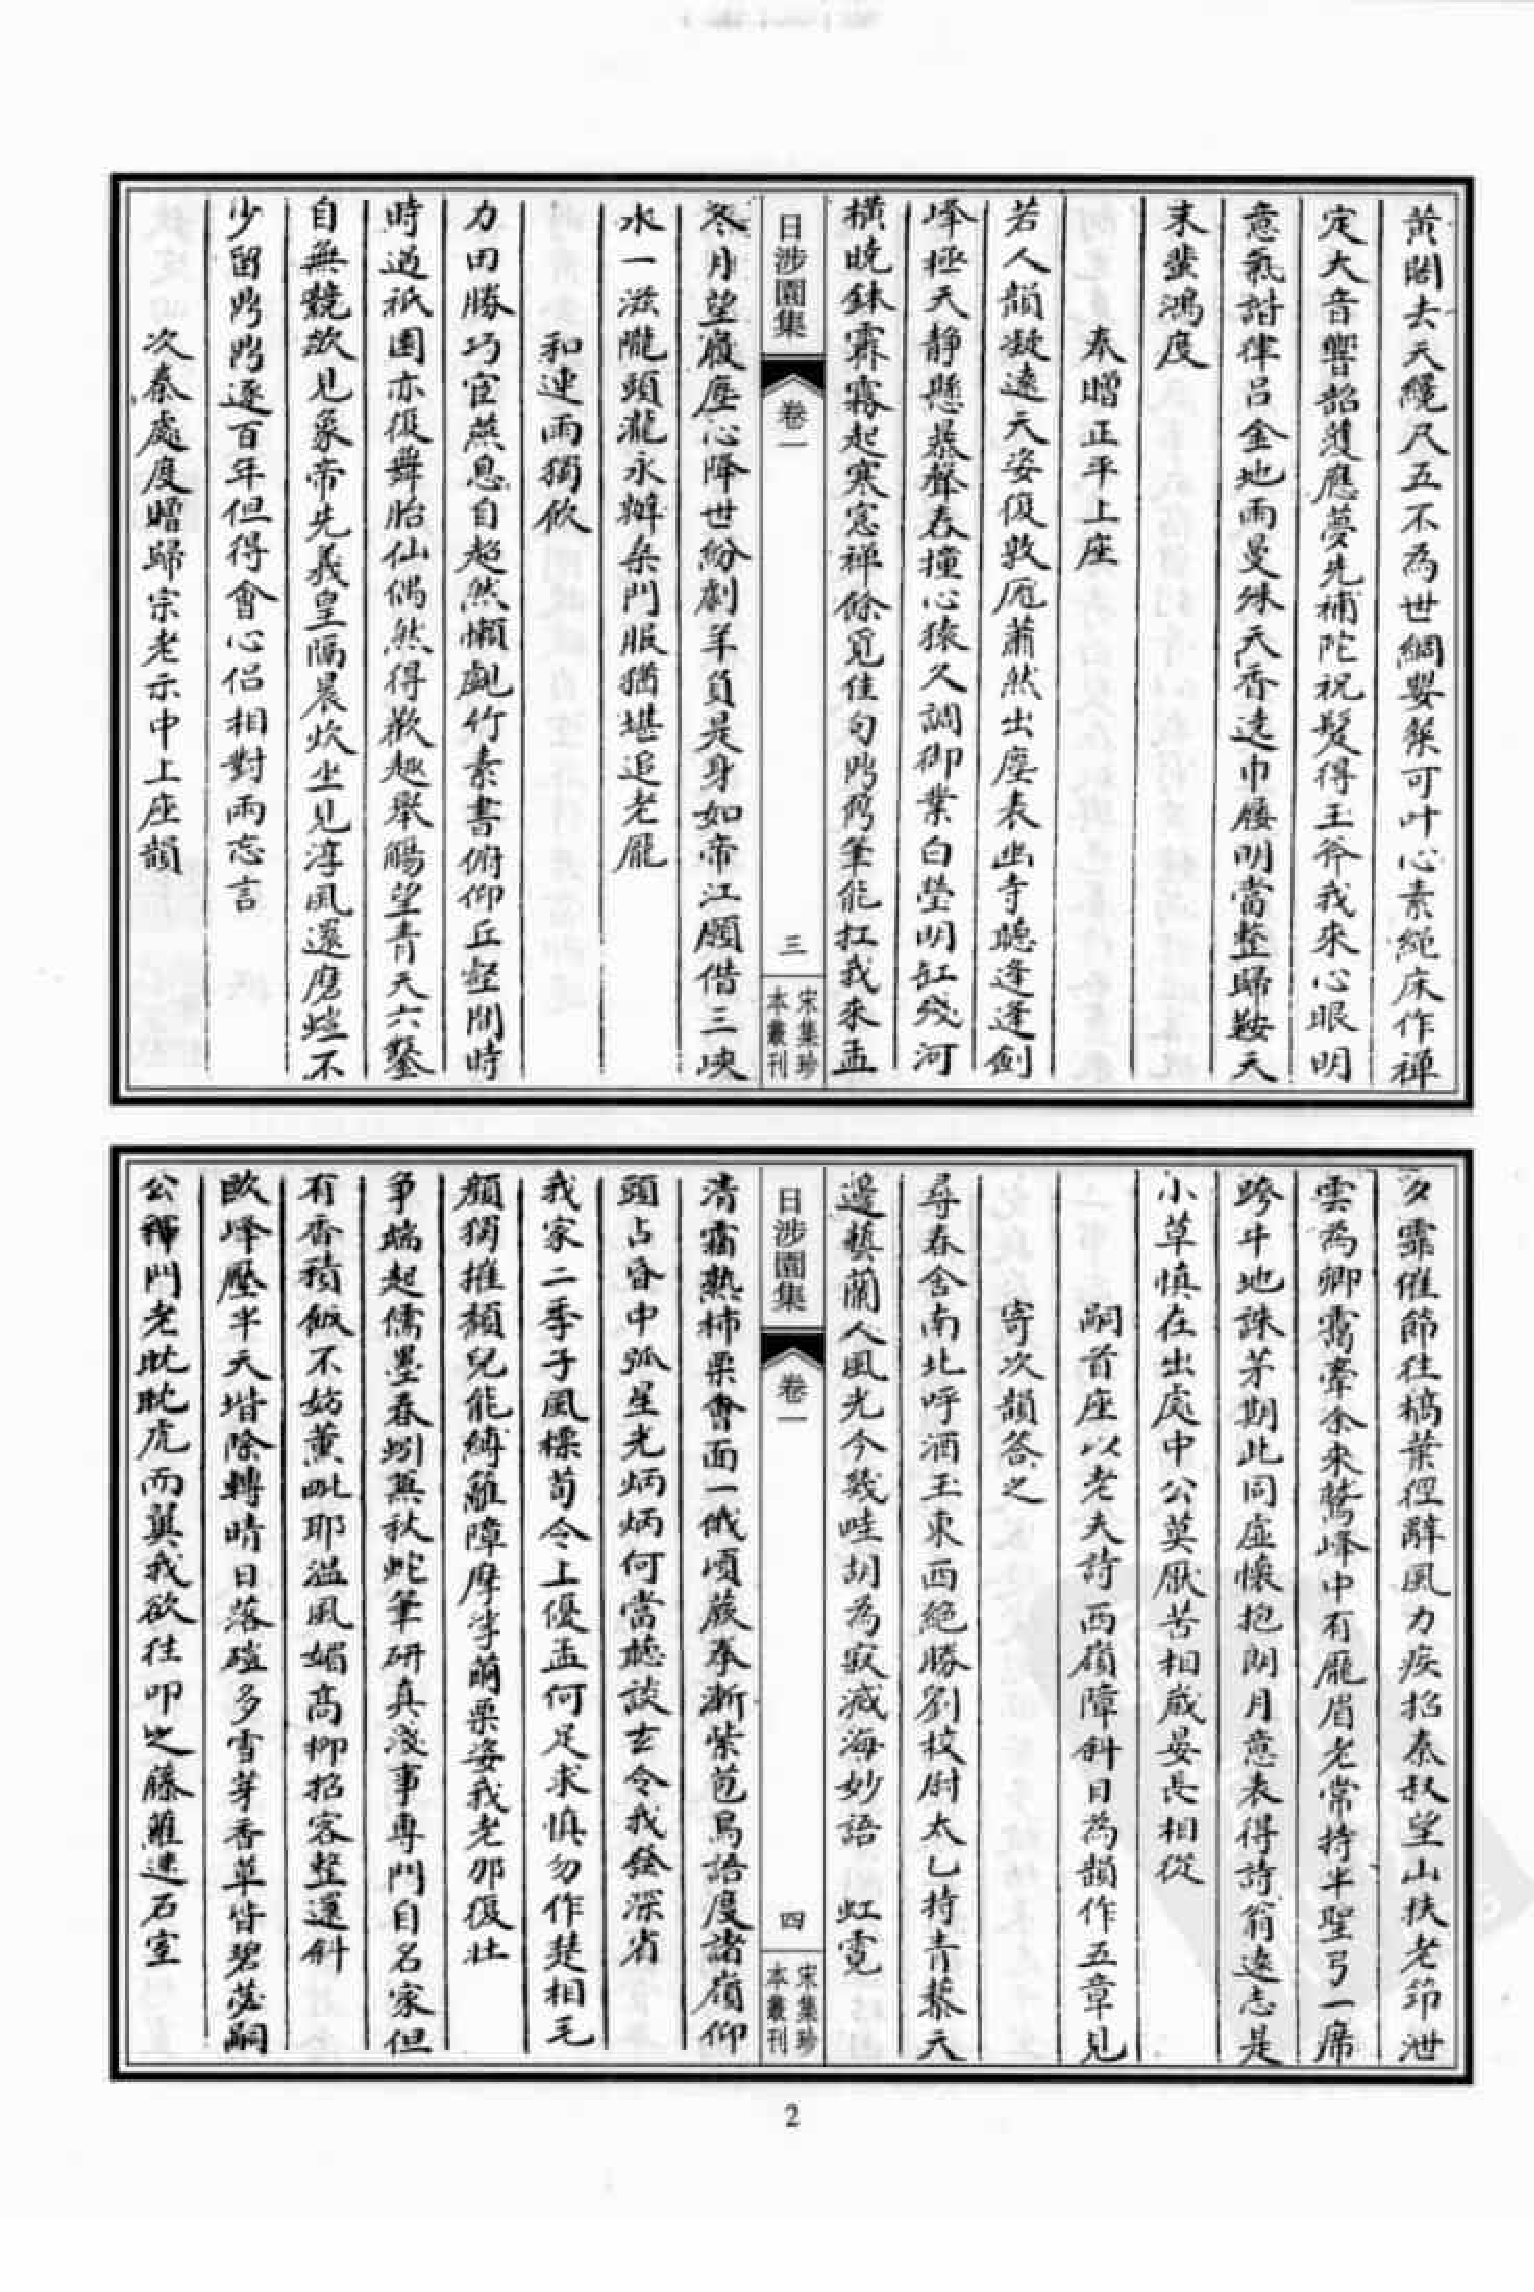 黄閣去天纔尺五不為世網嬰粲可叶心素繩床作禪
定大音響韶頀應夢先補陀祝髮得玉斧我來心眼明
意氣諧律呂金地雨曼殊天香遶巾屨明當整歸鞍天
末蜚鴻度
奉贈正平上座
若人韻凝遠天姿復敦厖蕭然出塵表幽寺聽逢逢劍
峰極天静懸暴聲舂撞心猿久調御業白瑩明缸殘河
橫曉鉢霽霧起寒窓禅餘覓佳句時携筆能扛我來孟
日涉園集
卷一
三
宋集珍
本叢刊
冬月望履塵心降世紛劇羊負是身如帝江願借三峽
水一滋隴頭瀧永辦桑門服猶堪追老龐
和連雨獨飲
力田勝巧宦燕息自超然懶亂竹素書俯仰丘壑間時
時過祇園亦復舞胎仙偶然得歡趣舉觴望青天六鑿
自無競欻見象帝先義皇隔晨炊坐見淳風還麏㷟不
少留時時逐百年但得會心侶相對雨忘言
次秦處度贈歸宗老示中上座韻
夕霏催節往槁葉徑辭風力疾招秦叔望山扶老筇泄
雲為卿靄牽余來鷲峰中有龐眉老常持半聖弓一席
跨斗地誅茅期此同虛懷抱朗月意表得詩翁遠志是
小草慎在出處中公莫厭苦相嵗晏長相從
嗣首座以老夫詩西嶺障斜日為韻作五章見
寄次韻答之
尋春舍南北呼酒玉東西絶勝劉校尉太乙持青藜天
邊藝蘭人風光今幾畦胡為寂滅海妙語虹霓
日涉園集
卷一
四
宋集珍
本叢刊
清霜熟柿栗會面一俄頃蕨拳漸紫苞鳥語度諸嶺仰
頭占昏中弧星光炳炳何當聽談玄令我發深省
我家二季子風標荀令上優孟何足求慎勿作楚相毛
顏猬摧頹兒能縛籬障摩挲繭栗姿我老那復壯
爭端起儒墨春蚓無秋蛇筆研真淺事專門自名家但
有香積飯不妨薰毗耶溫風媚高柳招客整還斜
歐峰壓半天堦除轉晴日落磑多雪芽香草皆碧苾嗣
公禪門老眈眈虎而翼我欲往叩之藤蘿迷石室
2